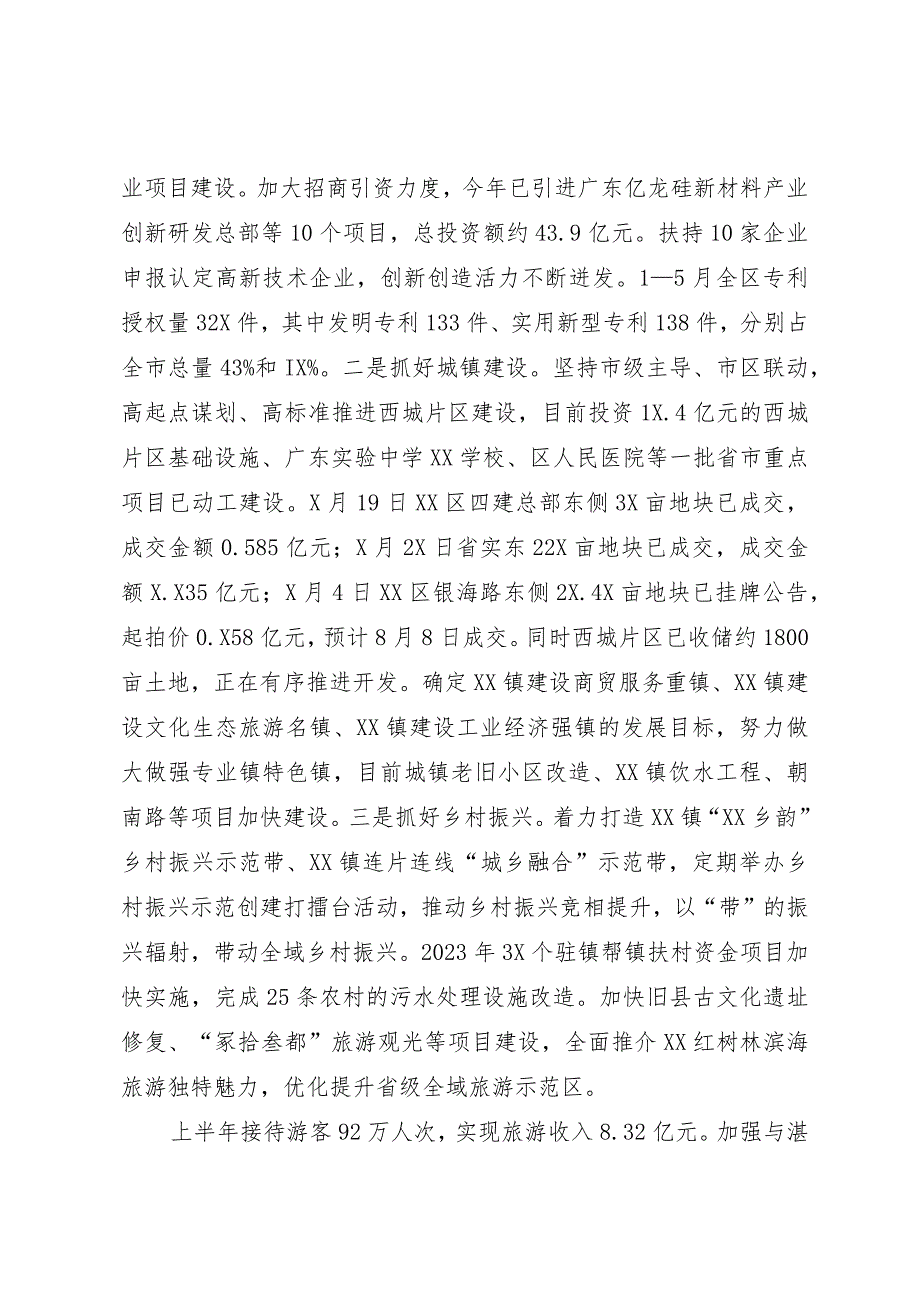 业项目建设。加大招商引资力度，今年已引进广东亿龙硅新材料产业
创新研发总部等10个项目，总投资额约43.9亿元。扶持10家企业
申报认定高新技术企业，创新创造活力不断迸发。1—5月全区专利
授权量32X件，其中发明专利133件、实用新型专利138件，分别占
全市总量43%和IX%。二是抓好城镇建设。坚持市级主导、市区联动，
高起点谋划、高标准推进西城片区建设，目前投资1X.4亿元的西城
片区基础设施、广东实验中学XX学校、区人民医院等一批省市重点
项目已动工建设。X月19日XX区四建总部东侧3X亩地块已成交，
成交金额0.585亿元；X月2X日省实东22X亩地块已成交，成交金
额X.X35亿元；X月4日XX区银海路东侧2X.4X亩地块已挂牌公告，
起拍价0.X58亿元，预计8月8日成交。同时西城片区已收储约1800
亩土地，正在有序推进开发。确定XX镇建设商贸服务重镇、XX镇建
设文化生态旅游名镇、XX镇建设工业经济强镇的发展目标，努力做
大做强专业镇特色镇，目前城镇老旧小区改造、XX镇饮水工程、朝
南路等项目加快建设。三是抓好乡村振兴。着力打造XX镇“XX乡韵”
乡村振兴示范带、XX镇连片连线“城乡融合”示范带，定期举办乡
村振兴示范创建打擂台活动，推动乡村振兴竞相提升，以“带”的振
兴辐射，带动全域乡村振兴。2023年3X个驻镇帮镇扶村资金项目加
快实施，完成25条农村的污水处理设施改造。加快旧县古文化遗址
修复、“冢拾叁都”旅游观光等项目建设，全面推介XX红树林滨海
旅游独特魅力，优化提升省级全域旅游示范区。
上半年接待游客92万人次，实现旅游收入8.32亿元。加强与湛